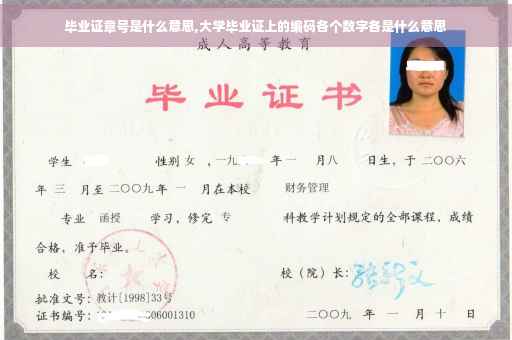 毕业证章号是什么意思,大学毕业证上的编码各个数字各是什么意思
成人高等教育
毕业证书
学生 性别 女 ,一九 年 一 月 八 日生,于 二〇〇六
年 三 月至 二〇〇九 年 一 月在本校 财务管理
专业 函授 学习,修完 专 科教学计划规定的全部课程,成绩
合格,准予毕业。
校 名: 校(院)长:
批准文号:教计[1998]33号
证书编号: 06001310 二〇〇九 年 一 月 十 日